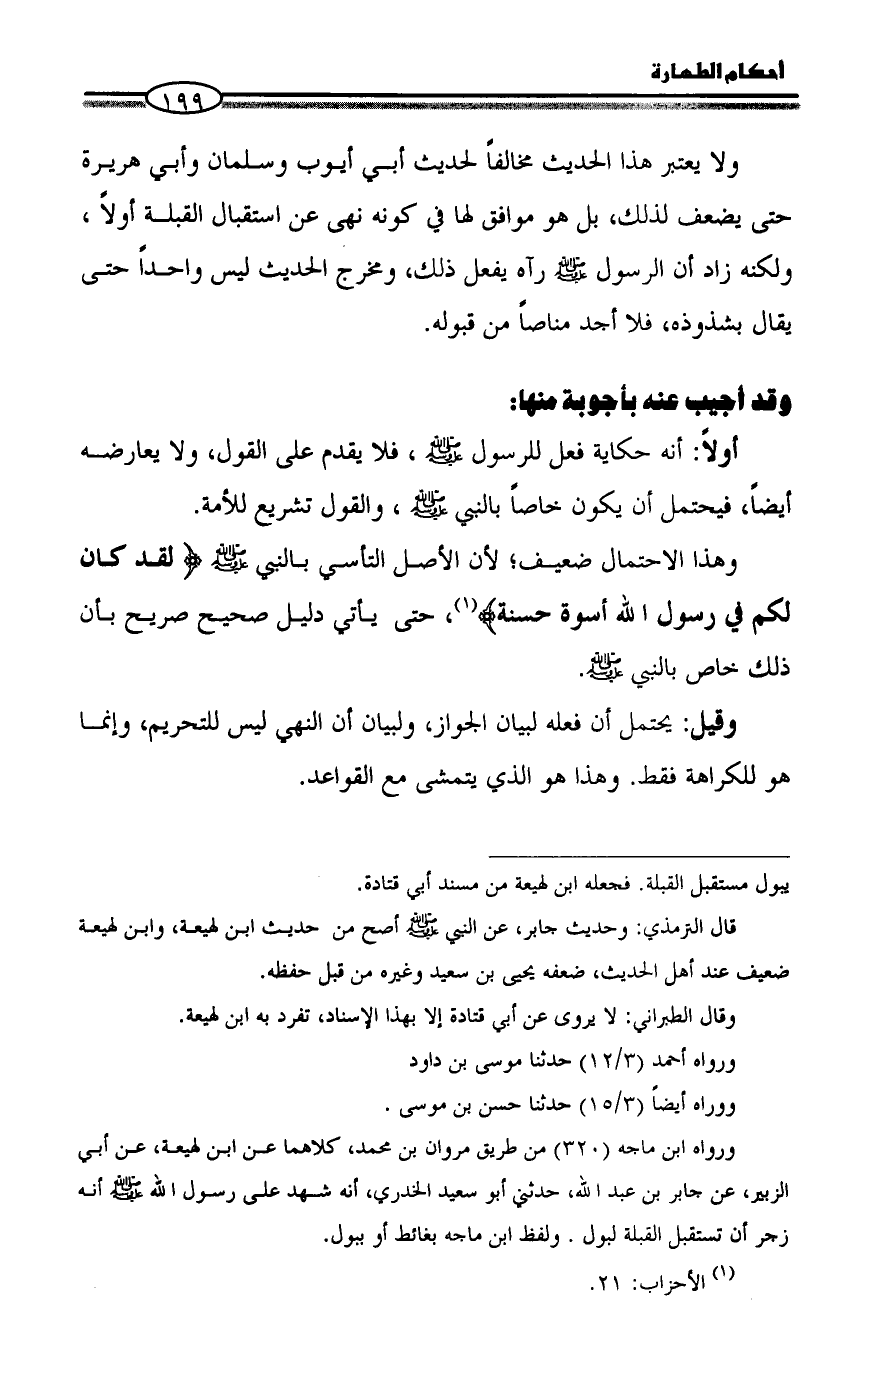 أحكام الطهارة
١٩٩
ولا يعتبر هذا الحديث مخالفاً لحديث أبي أيوب وسلمان وأبي هريرة
حتى يضعف لذلك، بل هو موافق لها في كونه نهى عن استقبال القبلة أولاً ،
ولكنه زاد أن الرسول ﷺ رآه يفعل ذلك، ومخرج الحديث ليس واحداً حتى
يقال بشذوذه، فلا أجد مناصاً من قبوله.
وقد أجيب عنه بأجوبة منها:
أولاً: أنه حكاية فعل للرسول ﷺ ، فلا يقدم على القول، ولا يعارضه
أيضاً، فيحتمل أن يكون خاصاً بالنبي ﷺ ، والقول تشريع للأمة.
وهذا الاحتمال ضعيف؛ لأن الأصل التأسي بالنبي ﷺ ﴿ لقد كان
لكم في رسول الله أسوة حسنة﴾(١)، حتى يأتي دليل صحيح صريح بأن
ذلك خاص بالنبي ﷺ.
وقيل: يحتمل أن فعله لبيان الجواز، ولبيان أن النهي ليس للتحريم، وإنما
هو للكراهة فقط. وهذا هو الذي يتمشى مع القواعد.
يبول مستقبل القبلة. فجعله ابن لهيعة من مسند أبي قتادة.
قال الترمذي: وحديث جابر، عن النبي ﷺ أصح من حديث ابن لهيعة، وابن لهيعة
ضعيف عند أهل الحديث، ضعفه يحيى بن سعيد وغيره من قبل حفظه.
وقال الطبراني: لا يروى عن أبي قتادة إلا بهذا الإسناد، تفرد به ابن لهيعة.
ورواه أحمد (١٢/٣) حدثنا موسى بن داود
وورواه أيضاً (١٥/٣) حدثنا حسن بن موسى .
ورواه ابن ماجه (٣٢٠) من طريق مروان بن محمد، كلاهما عن ابن لهيعة، عن أبي
الزبير، عن جابر بن عبد الله، حدثني أبو سعيد الخدري، أنه شهد على رسول الله ﷺ أنه
زجر أن تستقبل القبلة لبول . ولفظ ابن ماجه بغائط أو ببول.
(١) الأحزاب: ٢١.